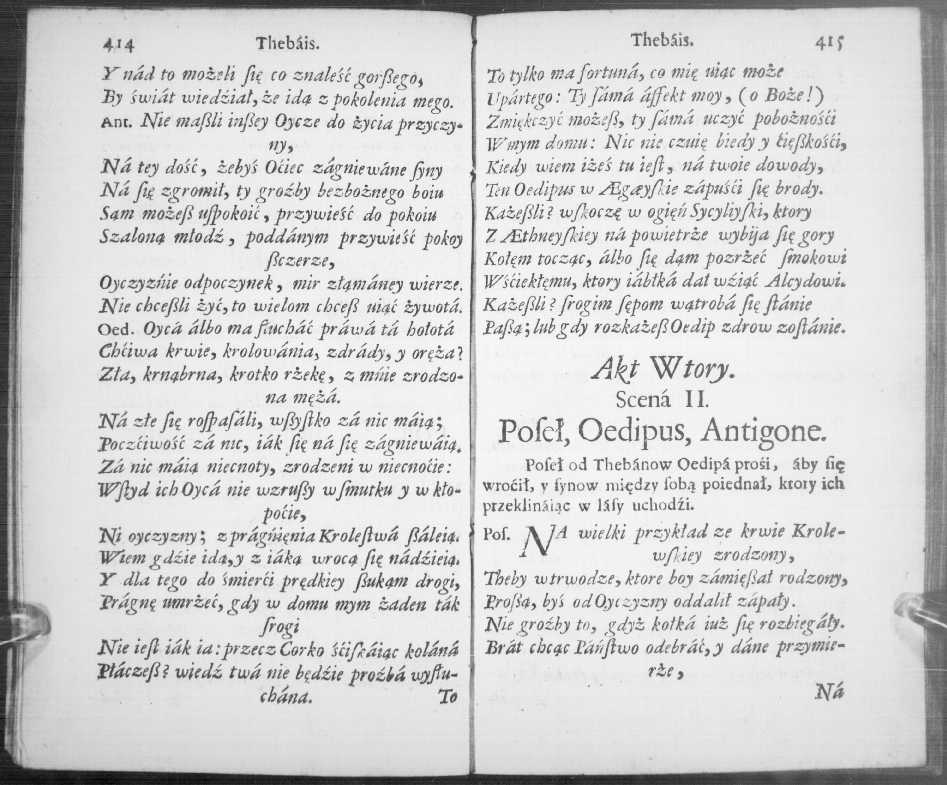 414 Thebáis.
Y nád to możeli ſię co znaleść gorßego,
By świát wiedźiał, że idą z pokolenia mego.
Ant. Nie maßli inßey Oycze do życia przyczy-
ny,
Ná tey dość, żebyś Oćiec zágniewáne ſyny
Ná ſię zgromił, ty groźby bezbożnego boiu
Sąm możeß uſpokoić, przywieść do pokoiu
Szaloną młodź, poddánym przywieść pokoy
ßczerze,
Oyczyźńie odpoczynek, mir złąmáney wierze.
Nie chceßli żyć, to wielom chceß uiąć żywotá.
Oed. Oycá álbo ma ſłucháć práwá tá hołotá
Chćiwa krwie, krolowánia, zdrády, y oręża?
Zła, krnąbrna, krotko rżekę, z mńie zrodzo-
na mężá.
Ná złe ſię roſpaſáli, wßyſtko zá nic máią;
Poczćiwość zá nic, iák ſię ná ſię zágniewáią.
Zá nic máią niecnoty, zrodzeni w niecnoćie:
Wſtyd ich Oycá nie wzrußy w ſmutku y w kło-
poćie,
Ni oyczyzny; z prágńięnia Kroleſtwá ßáleią.
Wiem gdźie idą, y z iáką wrocą ſię nádźieią.
Y dla tego do śmierći prędkiey ßukąm drogi,
Prágnę umrżeć, gdy w domu mym żaden ták
ſrogi
Nie ieſt iák ia: przecz Corko śćiſkáiąc koláná
Płáczeß? wiedź twá nie będźie proźbá wyſłu-
chána. To
Thebáis. 415
To tylko ma fortuná, co mię uiąc może
Upártego: Ty ſámá áffekt moy, (o Boże!)
Zmiękczyć możeß, ty ſámá uczyć pobożnośći
W mym domu: Nic nie czuię biedy y ćięßkośći,
Kiedy wiem iżeś tu ieſt, ná twoie dowody,
Ten Oedipus w Ægæyſkie zápuśći ſię brody.
Każeßli? wſkoczę w ogięń Sycyliyſki, ktory
Z Æthneyſkiey ná powietrże wybija ſię gory
Kołęm tocząc, álbo ſię dąm pozrżeć ſmokowi
Wśćiekłęmu, ktory iábłká dał wźiąć Alcydowi.
Każeßli? ſrogim ſępom wątrobá ſię ſtánie
Paßą; lub gdy rozkażeß Oedip zdrow zoſtánie.
Akt Wtory.
Scená II.
Poſeł, Oedipus, Antigone.
Poſeł od Thebánow Oedipá prośi, áby ſię
wroćił, y ſynow między ſobą poiednał, ktory ich
przeklináiąc w láſy uchodźi.
Poſ. NA wielki przykład ze krwie Krole-
wſkiey zrodzony,
Theby w trwodze, ktore boy zámięßał rodzony,
Proßą, byś od Oyczyzny oddalił zápały.
Nie groźby to, gdyż kołká iuż ſię rozbiegáły.
Brát chcąc Páńſtwo odebráć, y dáne przymie-
rże,
Ná